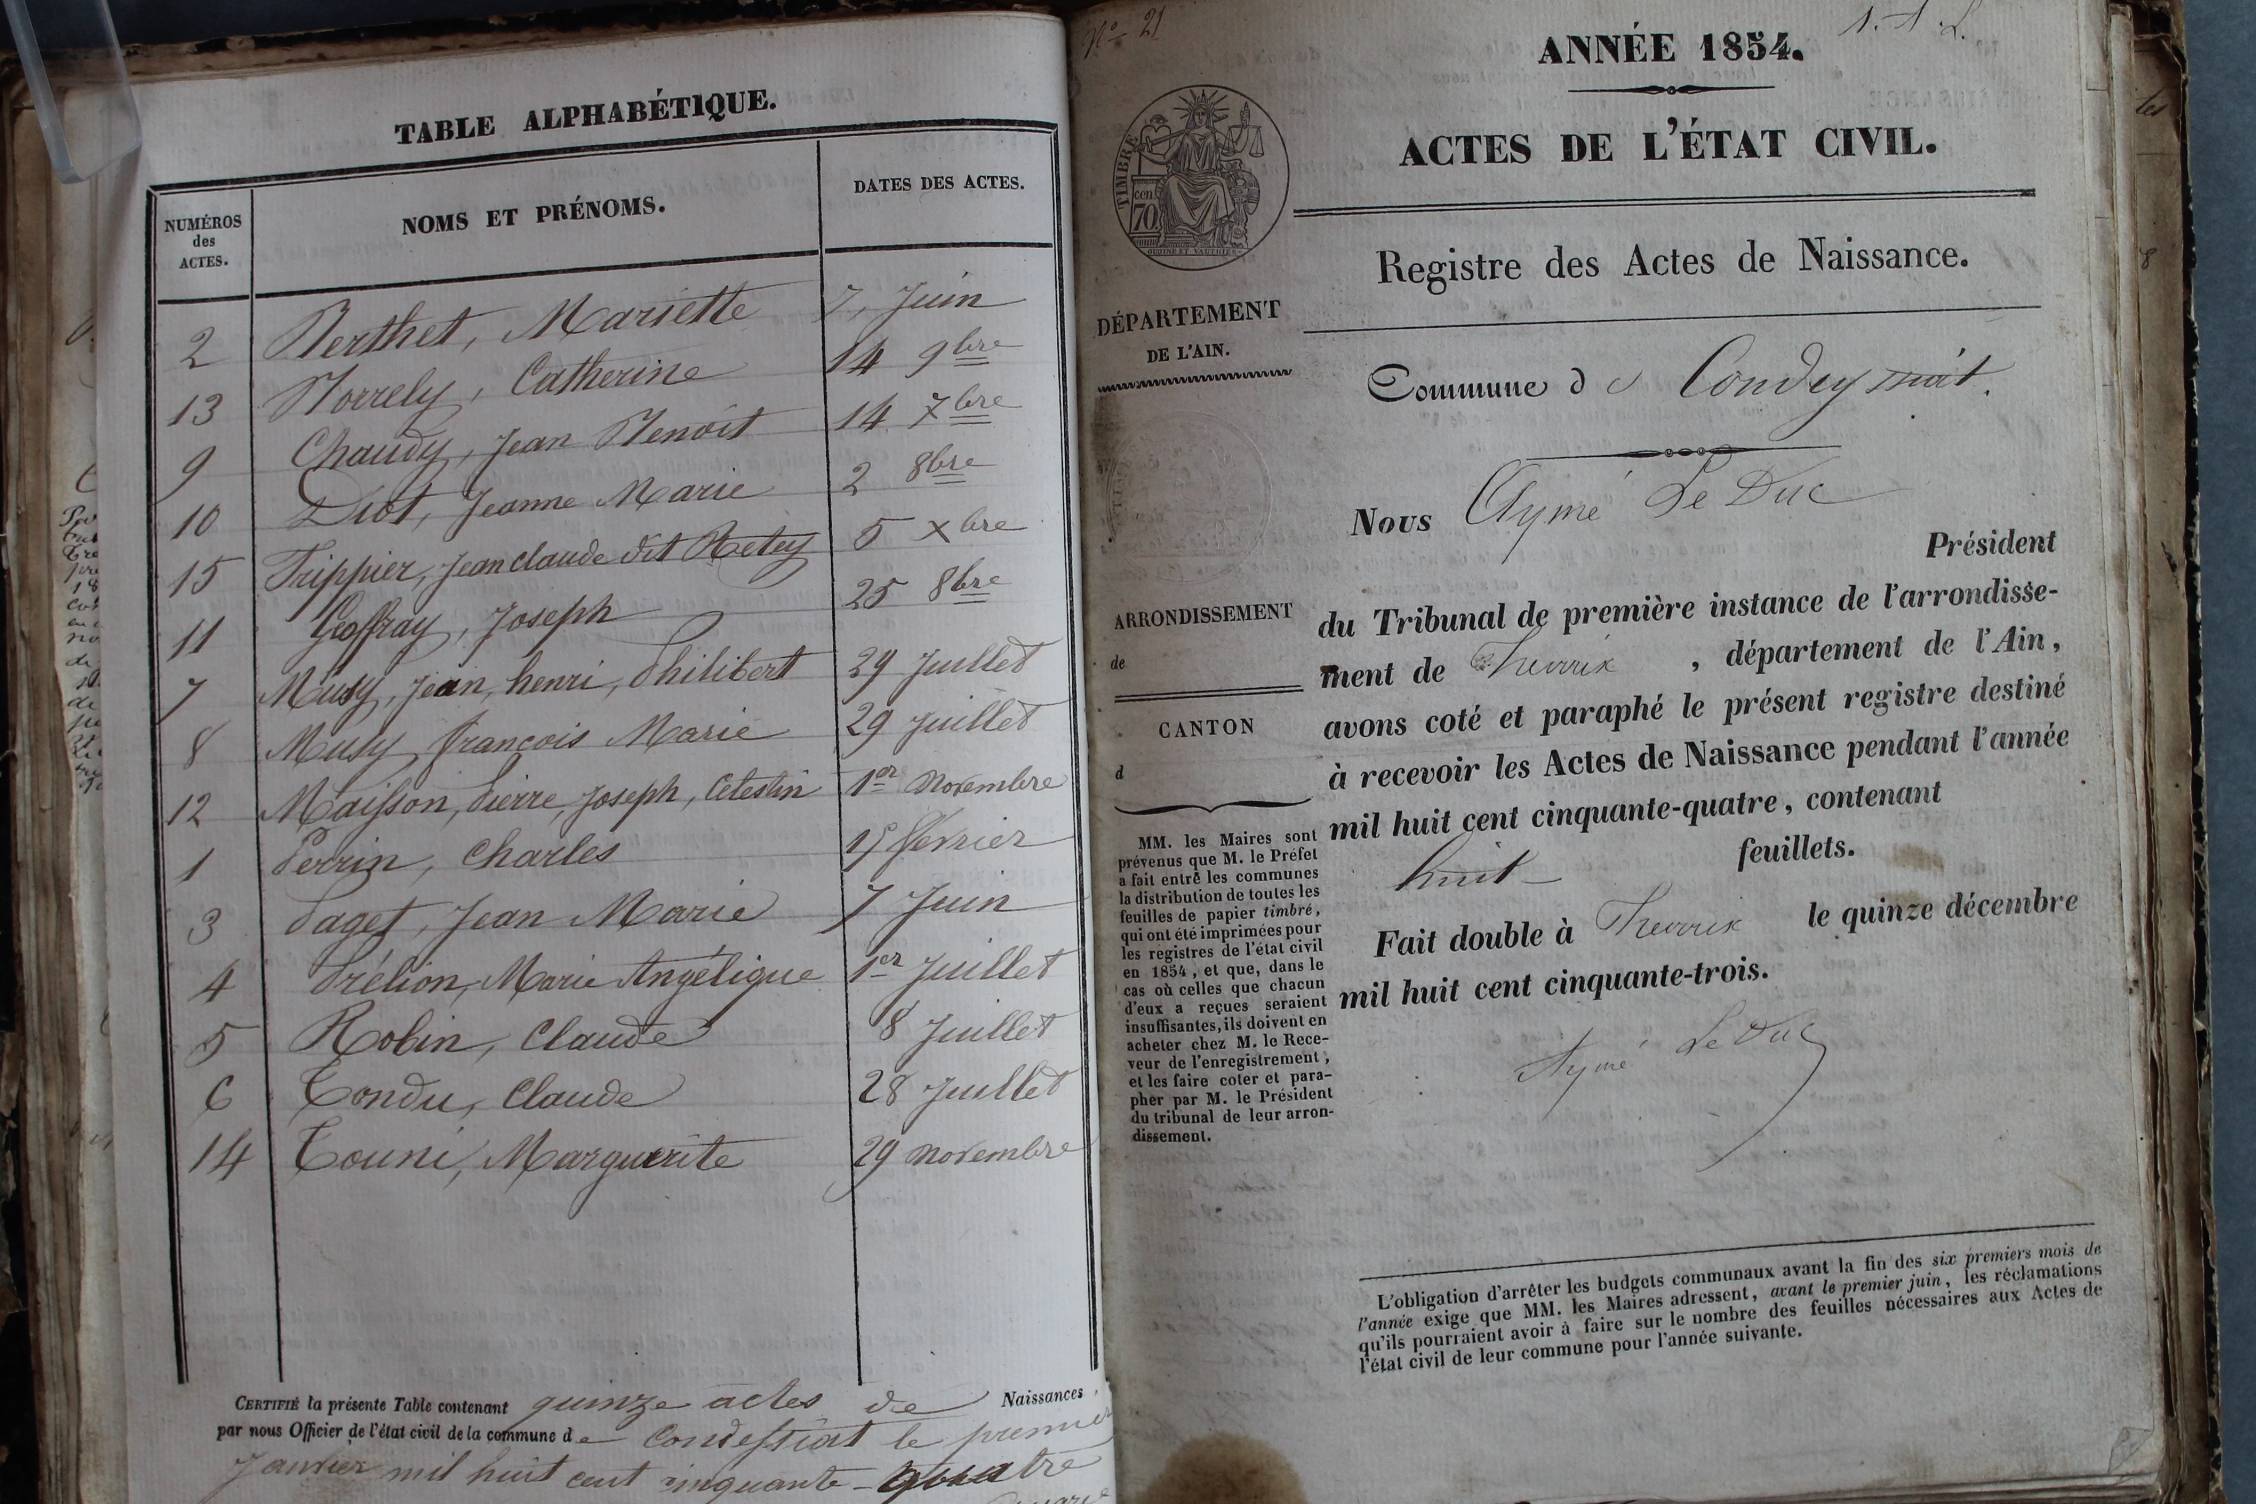 TABLE ALPHABÉTIQUE.
NUMÉROS des ACTES.
NOMS ET PRÉNOMS.
DATES DES ACTES.
2 Berthet, Mariette 7, Juin
13 Borrely, Catherine 14 9bre
9 Chaudy, Jean Benoit 14 7bre
10 Diot, Jeanne Marie 2 8bre
15 Trippier, Jean claude dit Retey 5 Xbre
11 Geoffray, Joseph 25 8bre
7 Musy, Jean, henri, Philibert 29 Juillet
8 Musy françois Marie 29 Juillet
12 Maisson, Pierre, Joseph, Celestin 1er novembre
1 Perrin, Charles 15 février
3 Paget, Jean Marie 7 Juin
4 Prélion, Marie Angélique 1er Juillet
5 Robin, Claude 8 Juillet
6 Tondu, Claude 28 Juillet
14 Touni, Marguerite 29 novembre
CERTIFIÉ la présente Table contenant quinze actes de Naissances
par nous Officier de l'état civil de la commune de Condessiat le premier
Janvier mil huit cent cinquante-quatre
No 21
ANNÉE 1854.
ACTES DE L'ÉTAT CIVIL.
Registre des Actes de Naissance.
TIMBRE
cen.
70
DÉPARTEMENT
DE L'AIN.
Commune de Condeyssiat.
Nous Aymé Le Duc
Président
du Tribunal de première instance de l'arrondisse-
ment de Trevoux, département de l'Ain,
avons coté et paraphé le présent registre destiné
à recevoir les Actes de Naissance pendant l'année
mil huit cent cinquante-quatre, contenant
huit feuillets.
Fait double à Trevoux le quinze décembre
mil huit cent cinquante-trois.
Aymé Le Duc
ARRONDISSEMENT
de
CANTON
d
MM. les Maires sont
prévenus que M. le Préfet
a fait entre les communes
la distribution de toutes les
feuilles de papier timbré,
qui ont été imprimées pour
les registres de l'état civil
en 1854, et que, dans le
cas où celles que chacun
d'eux a reçues seraient
insuffisantes, ils doivent en
acheter chez M. le Rece-
veur de l'enregistrement,
et les faire coter et para-
pher par M. le Président
du tribunal de leur arron-
dissement.
L'obligation d'arrêter les budgets communaux avant la fin des six premiers mois de
l'année exige que MM. les Maires adressent, avant le premier juin, les réclamations
qu'ils pourraient avoir à faire sur le nombre des feuilles nécessaires aux Actes de
l'état civil de leur commune pour l'année suivante.